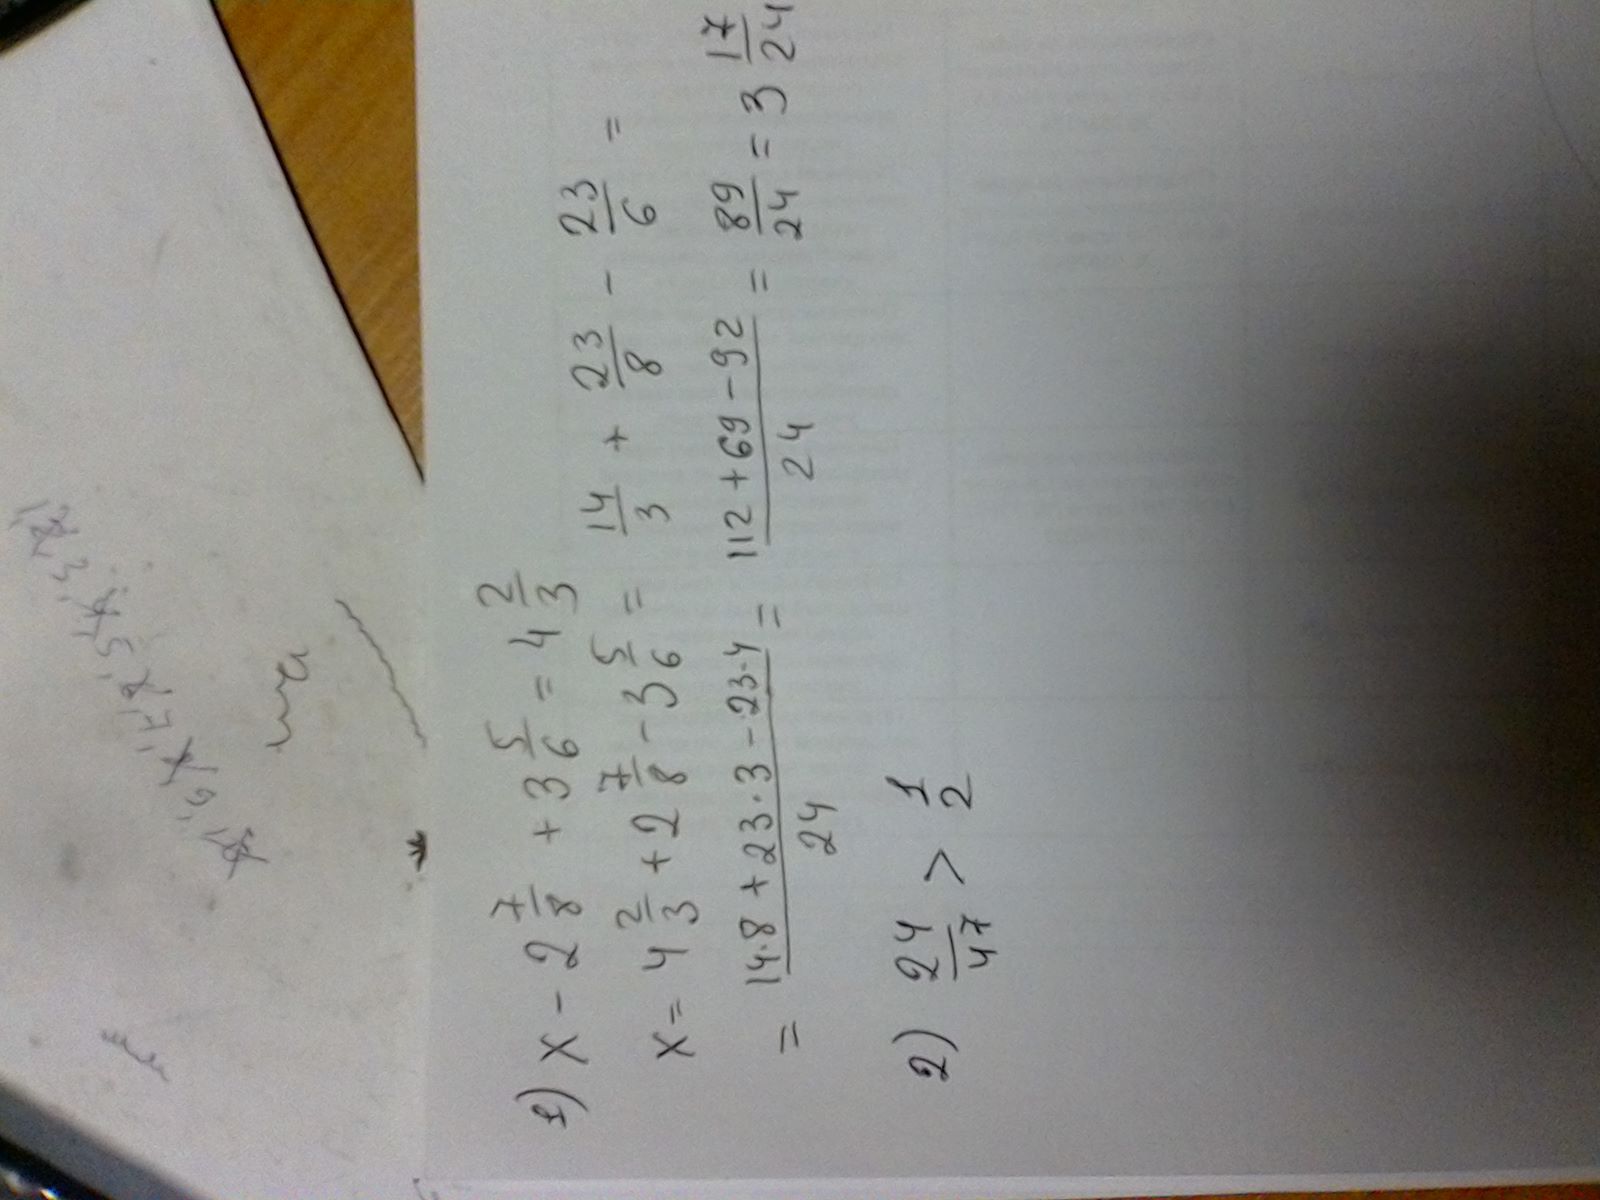 1) x - 2 7/8 + 3 5/6 = 4 2/3
x = 4 2/3 + 2 7/8 - 3 5/6 = 14/3 + 23/8 - 23/6 =
= (14·8 + 23·3 - 23·4)/24 = (112 + 69 - 92)/24 = 89/24 = 3 17/24
2) 24/47 > 1/2